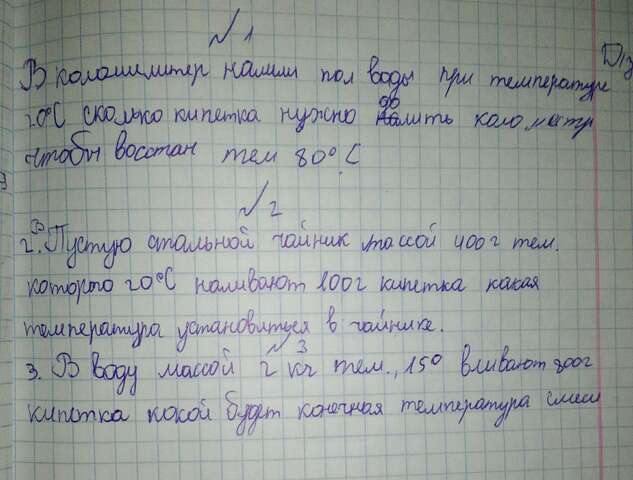 № 1
В колоашиметер налили пол воды при температуре
20°С сколько кипетка нужно долить коло метр
чтобы восстан тем 80°С
№ 2
2. В Пустую стальной чайник массой 400г тем.
которго 20°С наливают 100г кипетка какая
температура установиться в чайнике.
№ 3
3. В воду массой 2 кг тем., 15° вливают 800г
кипетка какой будет конечная температура смеси